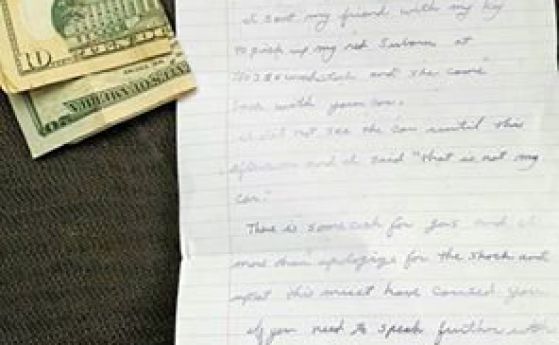 10
I sent my friend with my key
to pick up my red Subaru at
and she came
back with your car.
I did not see the car until this
afternoon and I said "that is not my
car."
There is some cash for gas and I
more than apologize for the shock and
upset this must have caused you
If you need to speak further with